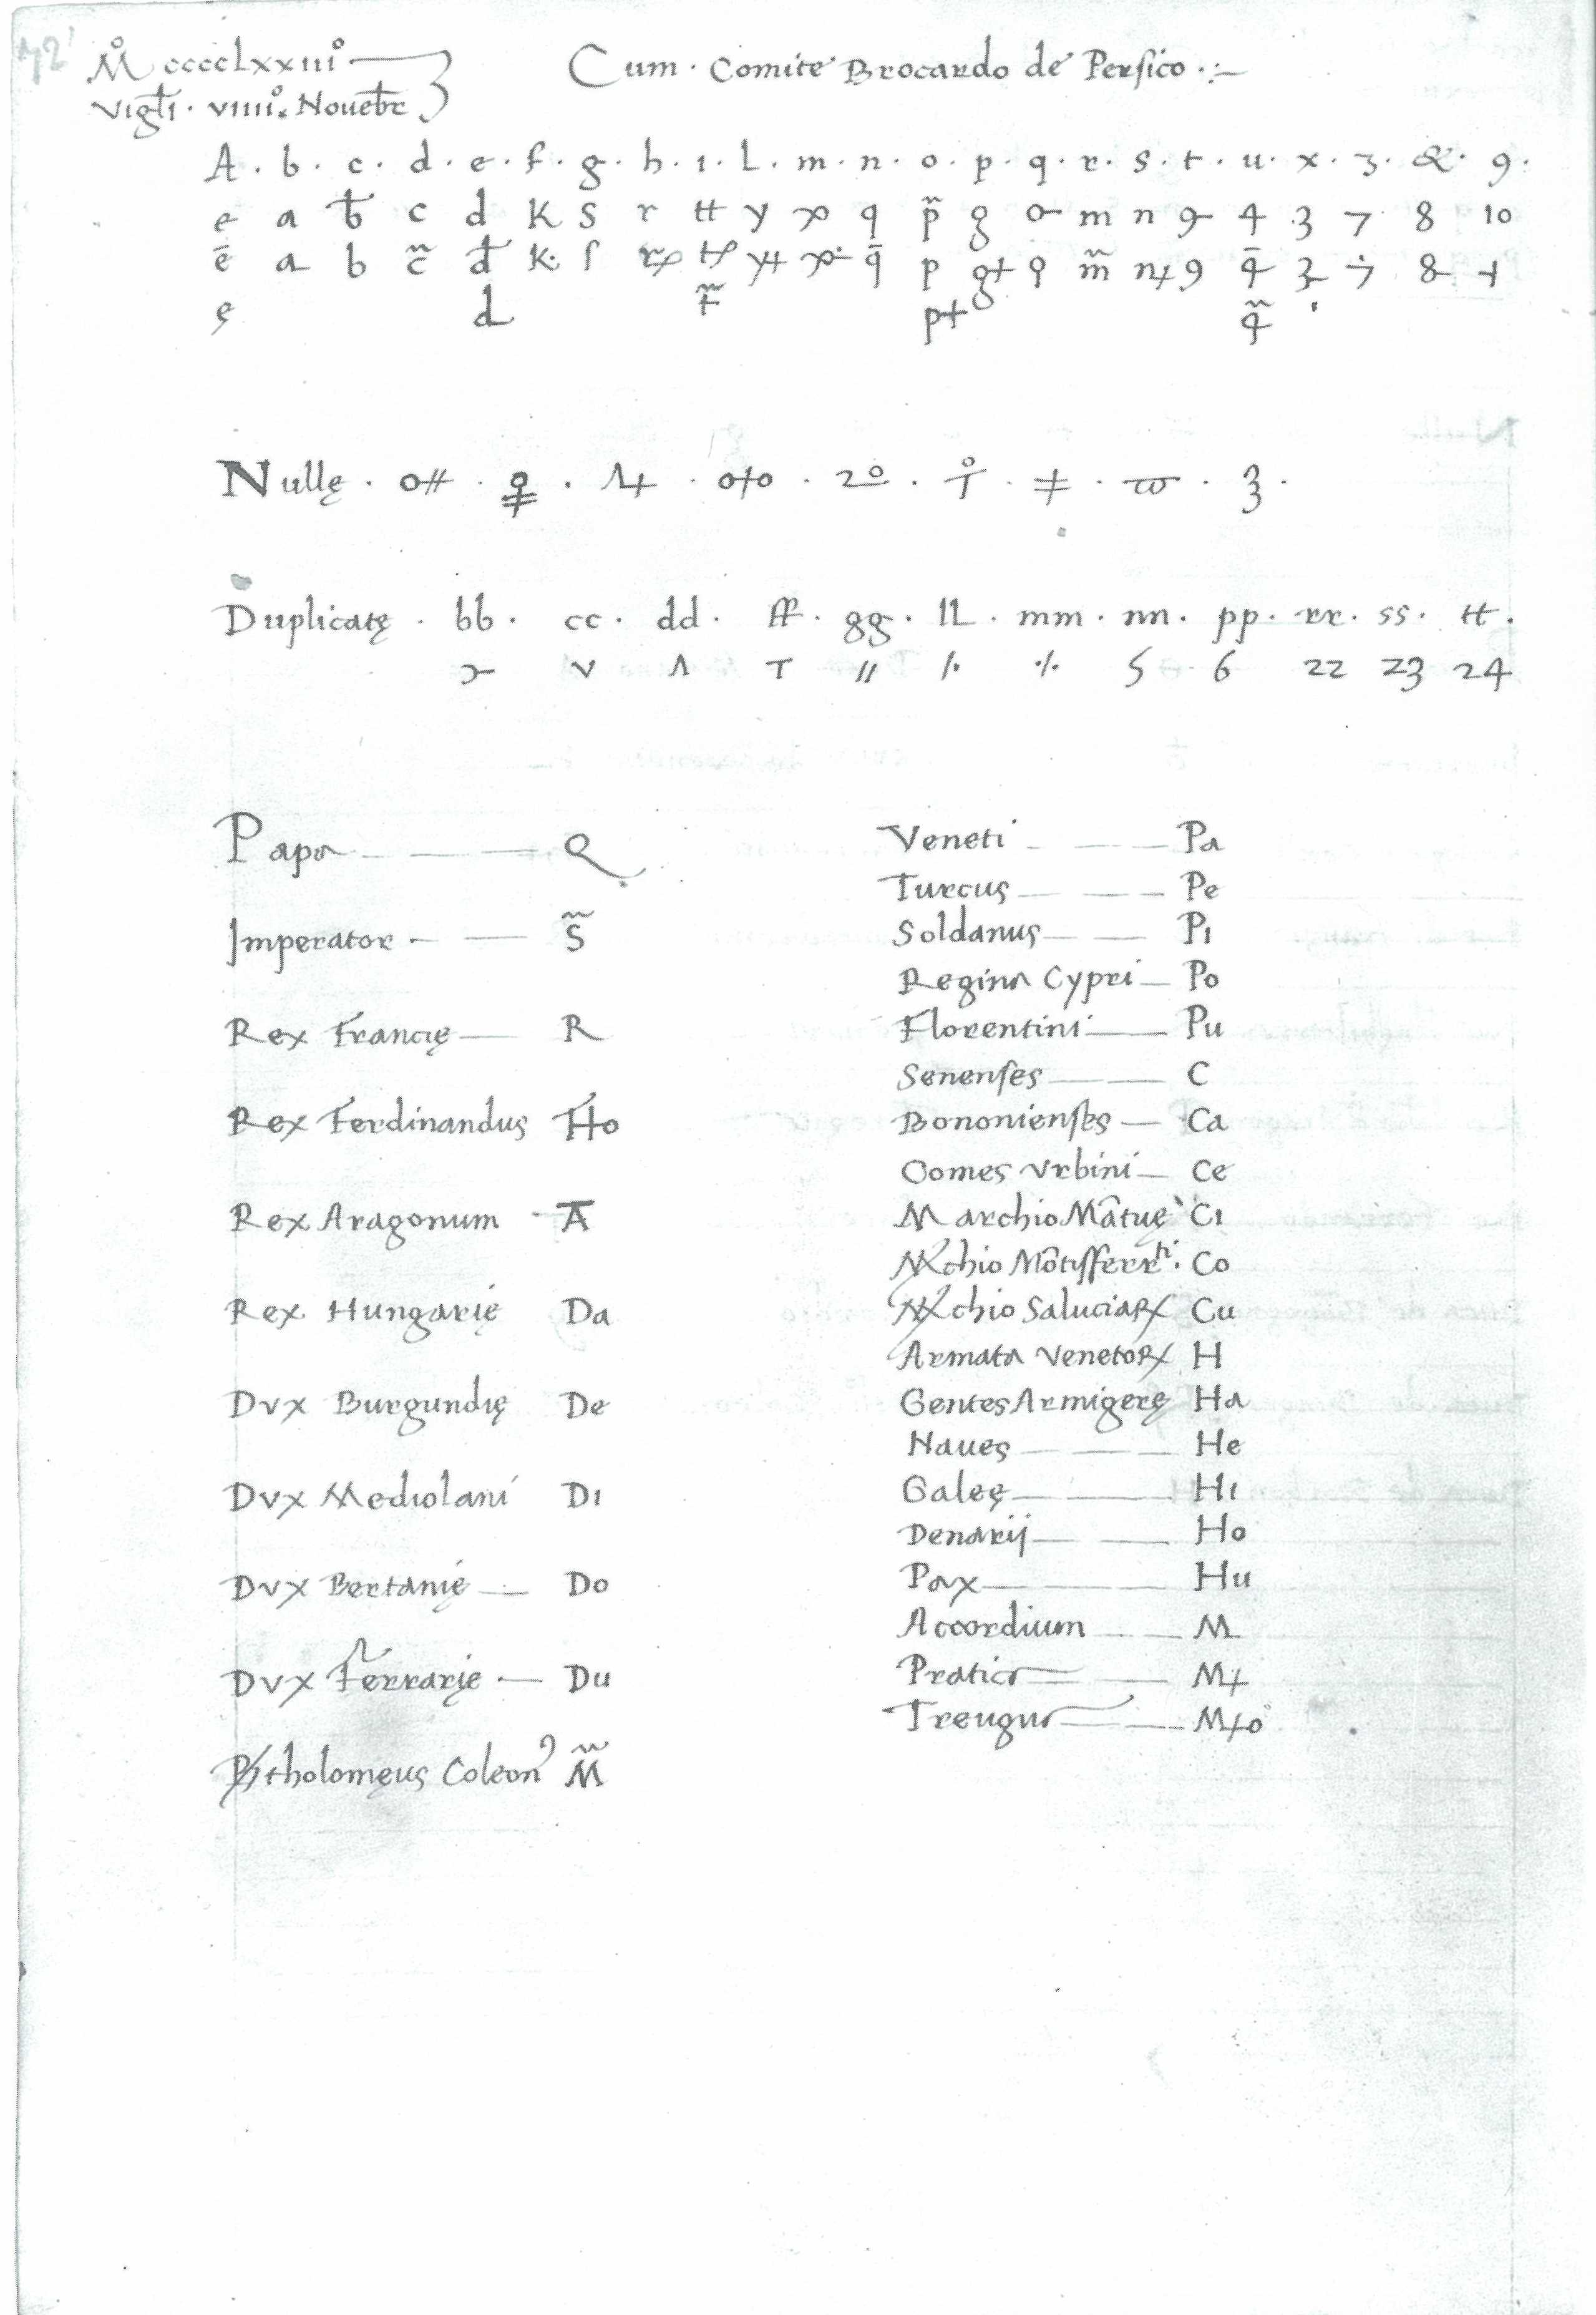 M° cccclxxiii°
Vigłi · viiii°. Nouēbr
Cum · Comite Brocardo de Persico · :-
A · b · c · d · e · f · g · h · ı · L · m · n · o · p · q · r · s · t · u · x · ʒ · & · 9 ·
e a ƀ c d K S r tt y q p̃ g m n 9 4 3 7 8 10
ē a b c̃ đ k· ſ q̄ p g+ m̃ 9 4̄ 3 8 +
ę d p+ 4̃
Nullę · o# · 2° ·
Duplicatę · bb · cc · dd · ff · gg · lL · mm · nn · pp · rr · ss · tt ·
v ʌ T // /· ·/· 5 6 22 23 24
Papa Q
Imperator S̃
Rex Francię R
Rex Ferdinandus Ho
Rex Aragonum Ā
Rex Hungarię Da
Dvx Burgundię De
Dvx Mediolani Dı
Dvx Bertanię Do
Dvx Ferrarię Du
Btholomęus Coleon⁹ M̃
Veneti Pa
Turcus Pe
Soldanus Pı
Regina Cypri Po
Florentini Pu
Senenses C
Bononienses Ca
Comes Vrbini Ce
Marchio Mātuę Cı
Mchio Mōtisferrti. Co
Mchio Saluciaꝝ Cu
Armata Venetoꝝ H
Gentes Armigerę Ha
Naues He
Galeę Hı
Denarij Ho
Pax Hu
Accordium M
Pratica M+
Treugua M+o